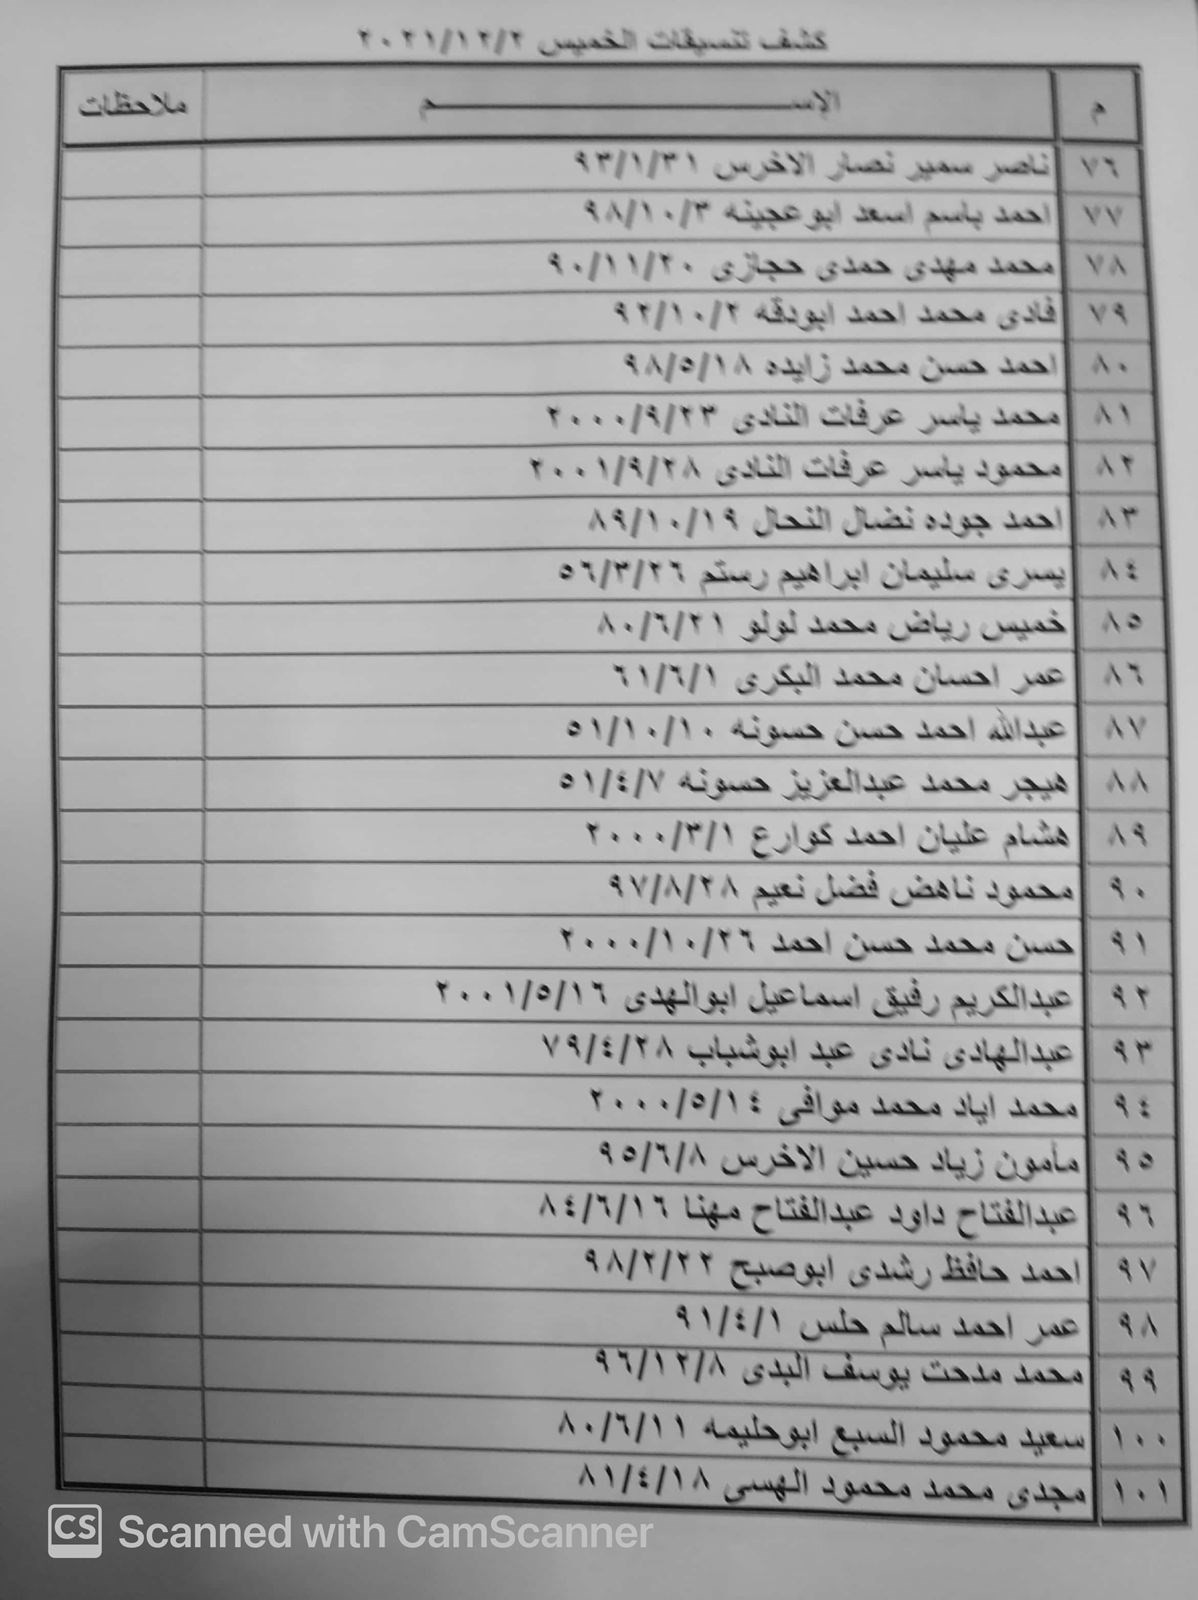 كشف تنسيقات الخميس ٢٠٢١/١٢/٢
م الاســـــــــــم ملاحظات
٧٦ ناصر سمير نصار الاخرس ٩٣/١/٣١
٧٧ احمد باسم اسعد ابوعجينه ٩٨/١٠/٣
٧٨ محمد مهدى حمدى حجازى ٩٠/١١/٢٠
٧٩ فادى محمد احمد ابودقه ٩٢/١٠/٢
٨٠ احمد حسن محمد زايده ٩٨/٥/١٨
٨١ محمد ياسر عرفات النادى ٢٠٠٠/٩/٢٣
٨٢ محمود ياسر عرفات النادى ٢٠٠١/٩/٢٨
٨٣ احمد جوده نضال النحال ٨٩/١٠/١٩
٨٤ يسرى سليمان ابراهيم رستم ٥٦/٣/٢٦
٨٥ خميس رياض محمد لولو ٨٠/٦/٢١
٨٦ عمر احسان محمد البكرى ٦١/٦/١
٨٧ عبدالله احمد حسن حسونه ٥١/١٠/١٠
٨٨ هيجر محمد عبدالعزيز حسونه ٥١/٤/٧
٨٩ هشام عليان احمد كوارع ٢٠٠٠/٣/١
٩٠ محمود ناهض فضل نعيم ٩٧/٨/٢٨
٩١ حسن محمد حسن احمد ٢٠٠٠/١٠/٢٦
٩٢ عبدالكريم رفيق اسماعيل ابوالهدى ٢٠٠١/٥/١٦
٩٣ عبدالهادى نادى عبد ابوشباب ٧٩/٤/٢٨
٩٤ محمد اياد محمد موافى ٢٠٠٠/٥/١٤
٩٥ مأمون زياد حسين الاخرس ٩٥/٦/٨
٩٦ عبدالفتاح داود عبدالفتاح مهنا ٨٤/٦/١٦
٩٧ احمد حافظ رشدى ابوصبح ٩٨/٢/٢٢
٩٨ عمر احمد سالم حلس ٩١/٤/١
٩٩ محمد مدحت يوسف البدى ٩٦/١٢/٨
١٠٠ سعيد محمود السبع ابوحليمه ٨٠/٦/١١
١٠١ مجدى محمد محمود الهسى ٨١/٤/١٨
CS Scanned with CamScanner